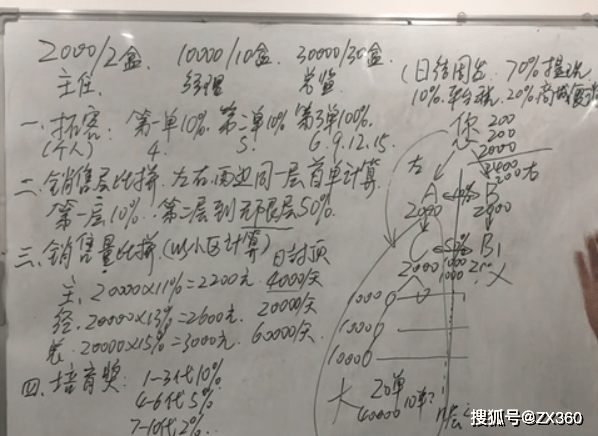 2000/2盒. 10000/10盒. 30000/30盒.
主任. 经理 总监
(日结周发. 70%提现
10%平台税. 20%商城复消
一. 拓客: 第一单10% 第二单10% 第3单100%
(个人) 4. 5. 6.9.12.15.
二. 销售层比拼. 左右两边同一层首单计算
第一层10%. 第二层到无限层50%.
三. 销售量比拼.(以小区计算) 日封顶
主. 20000×11%=2200元. 4000/天
经. 20000×13%=2600元. 20000/天
总. 20000×15%=3000元. 60000/天
四. 培育奖: 1-3代10%
4-6代5%
7-10代2%
你 200
200
2000
2400
左 200右
A B
2000 2000
C 50% B1
2000 1000
1000
1000
1000
1000
大 20单
40000 10单?
搜狐号@ZX360